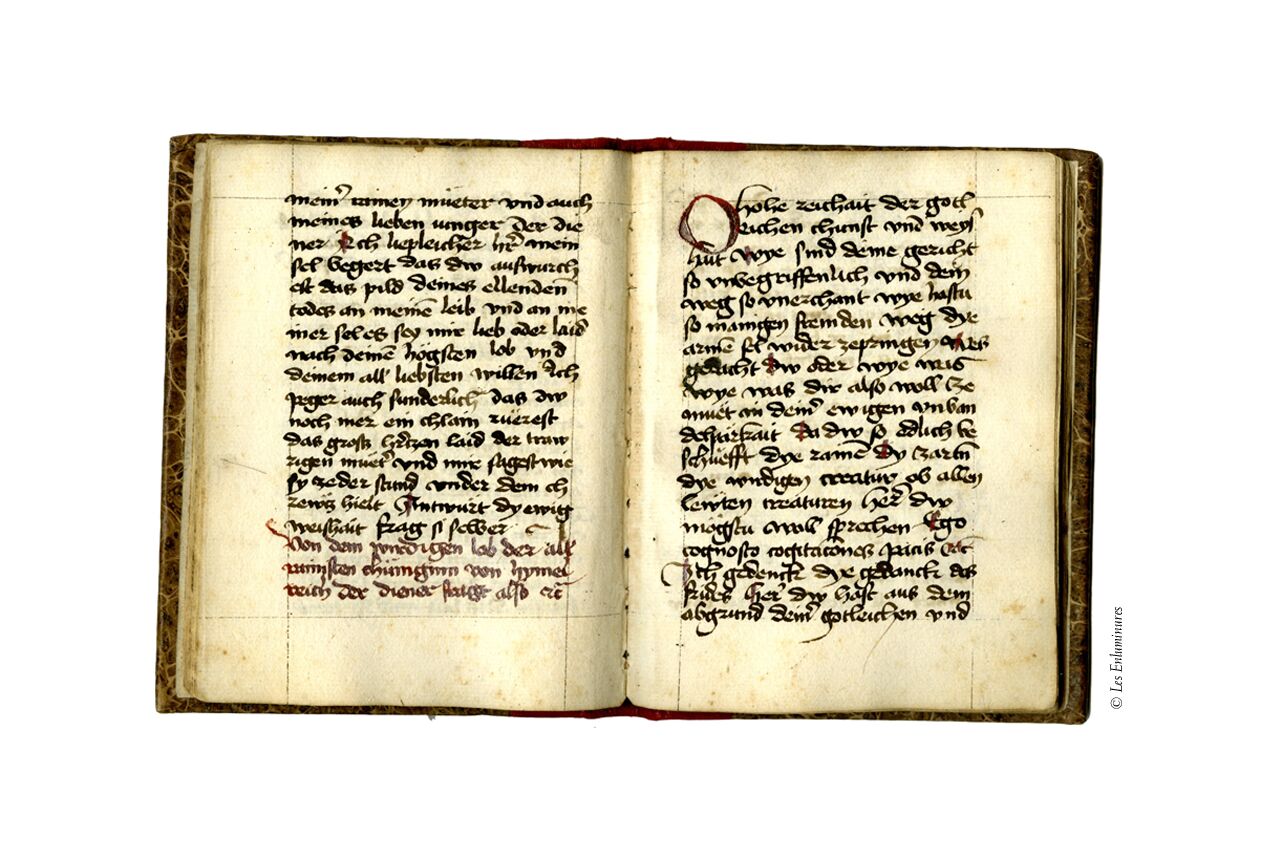 meinˀ rainen müeter vnd auch
meines lieben iunger Der die
ner Ach liepleicher hˀr mein
sel begert das dw auswurch
est das pild deines ellenden
todes an meinē leib vnd an me
iner sel es sey mir lieb oder laid
nach deinē högsten lob vnd
deinem all liebsten willen Ich
peger auch sunderlich das dw
noch mer ein chlain rüerest
das gross hˀrtzen laid der traw
rigen müetˀ vnd mir sagest wie
sy ze der stund vnder dem ch
rewtz hielt Antwürt dy ewig
weishait frag si selber
Von dem wirdigen lob der all
rainisten chünigum von hymel
reich Der diener fragt also etc̄
O hohe reichait der gotl
eichen chunst vnd weys
hait wye sind deine gericht
so vnbegriffenlich vnd dein
weg so vnerchant wye hastu
so manigen fremden weg dye
armē sel wider zepringen Wes
gedacht dw oder wye was
wye was dir also woll tze
müet in deinˀ ewigen vnban
delpärkait Da dw so edlich be
schüefft dye rainē Dy zartn̄
dye wirdigen creatur ob allen
lewten creaturen herˀ dw
mögstu woll sprechen Ego
cognosco cogitacōnes pacis etc̄
Ich gedenck dye gedanck des
frides herˀ dw hast aus dem
abgrund deinˀ gotleichen vnd
© Les Enluminures